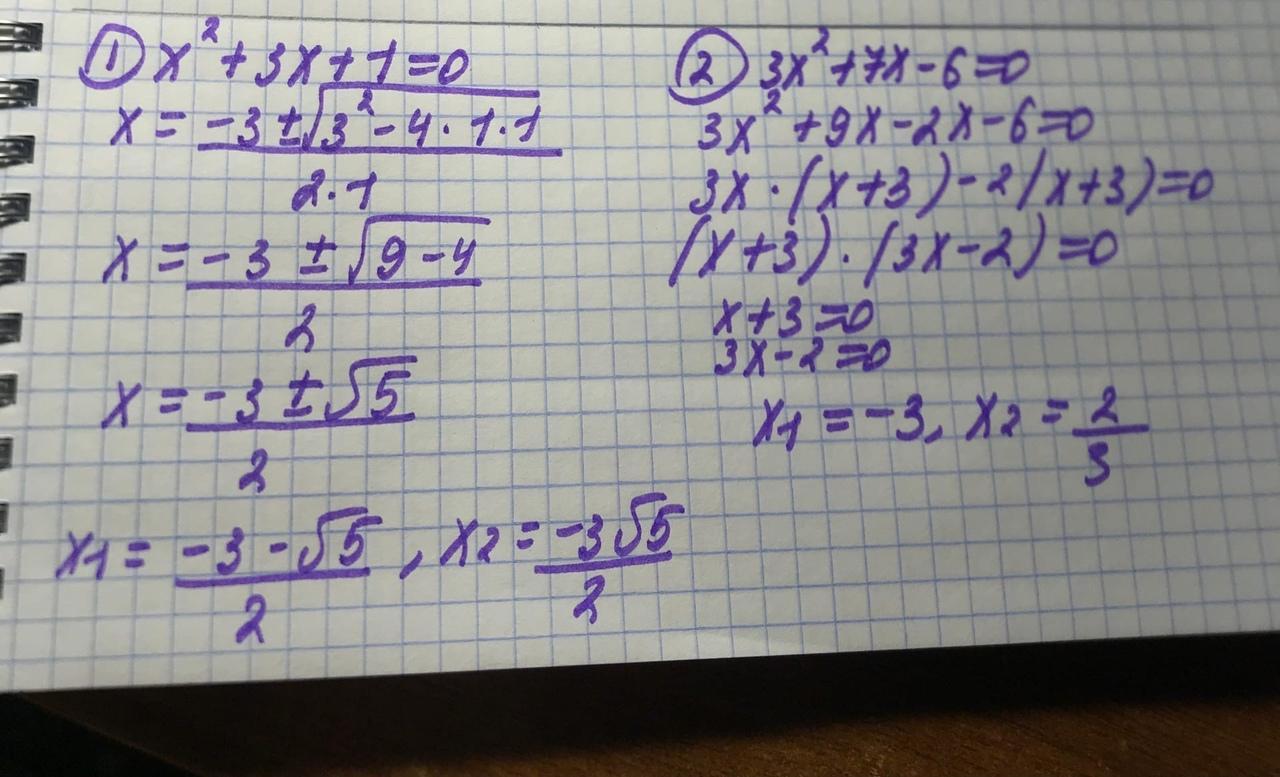 ① x² + 3x + 1 = 0
x = (-3 ± √(3² - 4 · 1 · 1)) / (2 · 1)
x = (-3 ± √(9 - 4)) / 2
x = (-3 ± √5) / 2
x1 = (-3 - √5) / 2 , x2 = (-3√5) / 2
② 3x² + 7x - 6 = 0
3x² + 9x - 2x - 6 = 0
3x · (x + 3) - 2(x + 3) = 0
(x + 3) · (3x - 2) = 0
x + 3 = 0
3x - 2 = 0
x1 = -3, x2 = 2 / 3